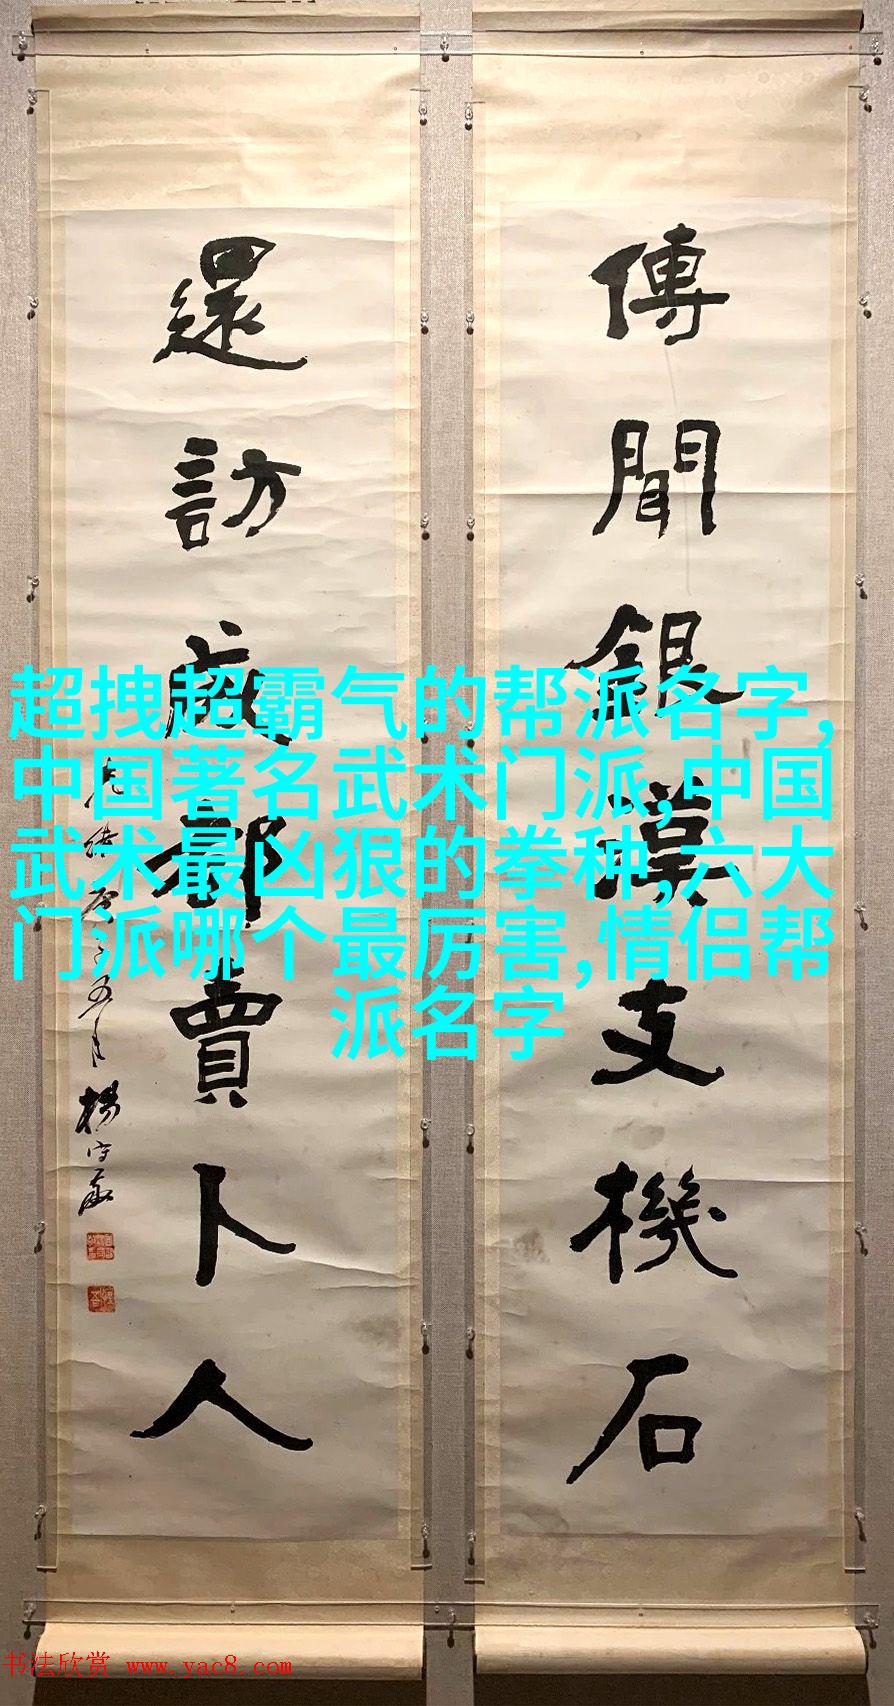 傳聞銀漢支機石
還訪成都賣卜人
楊守敬
超拽超霸气的帮派名字,
中国著名武术门派,中国
武术最凶狠的拳种,六大
门派哪个最厉害,情侣帮
派名字
书法欣赏 www.yac8.com